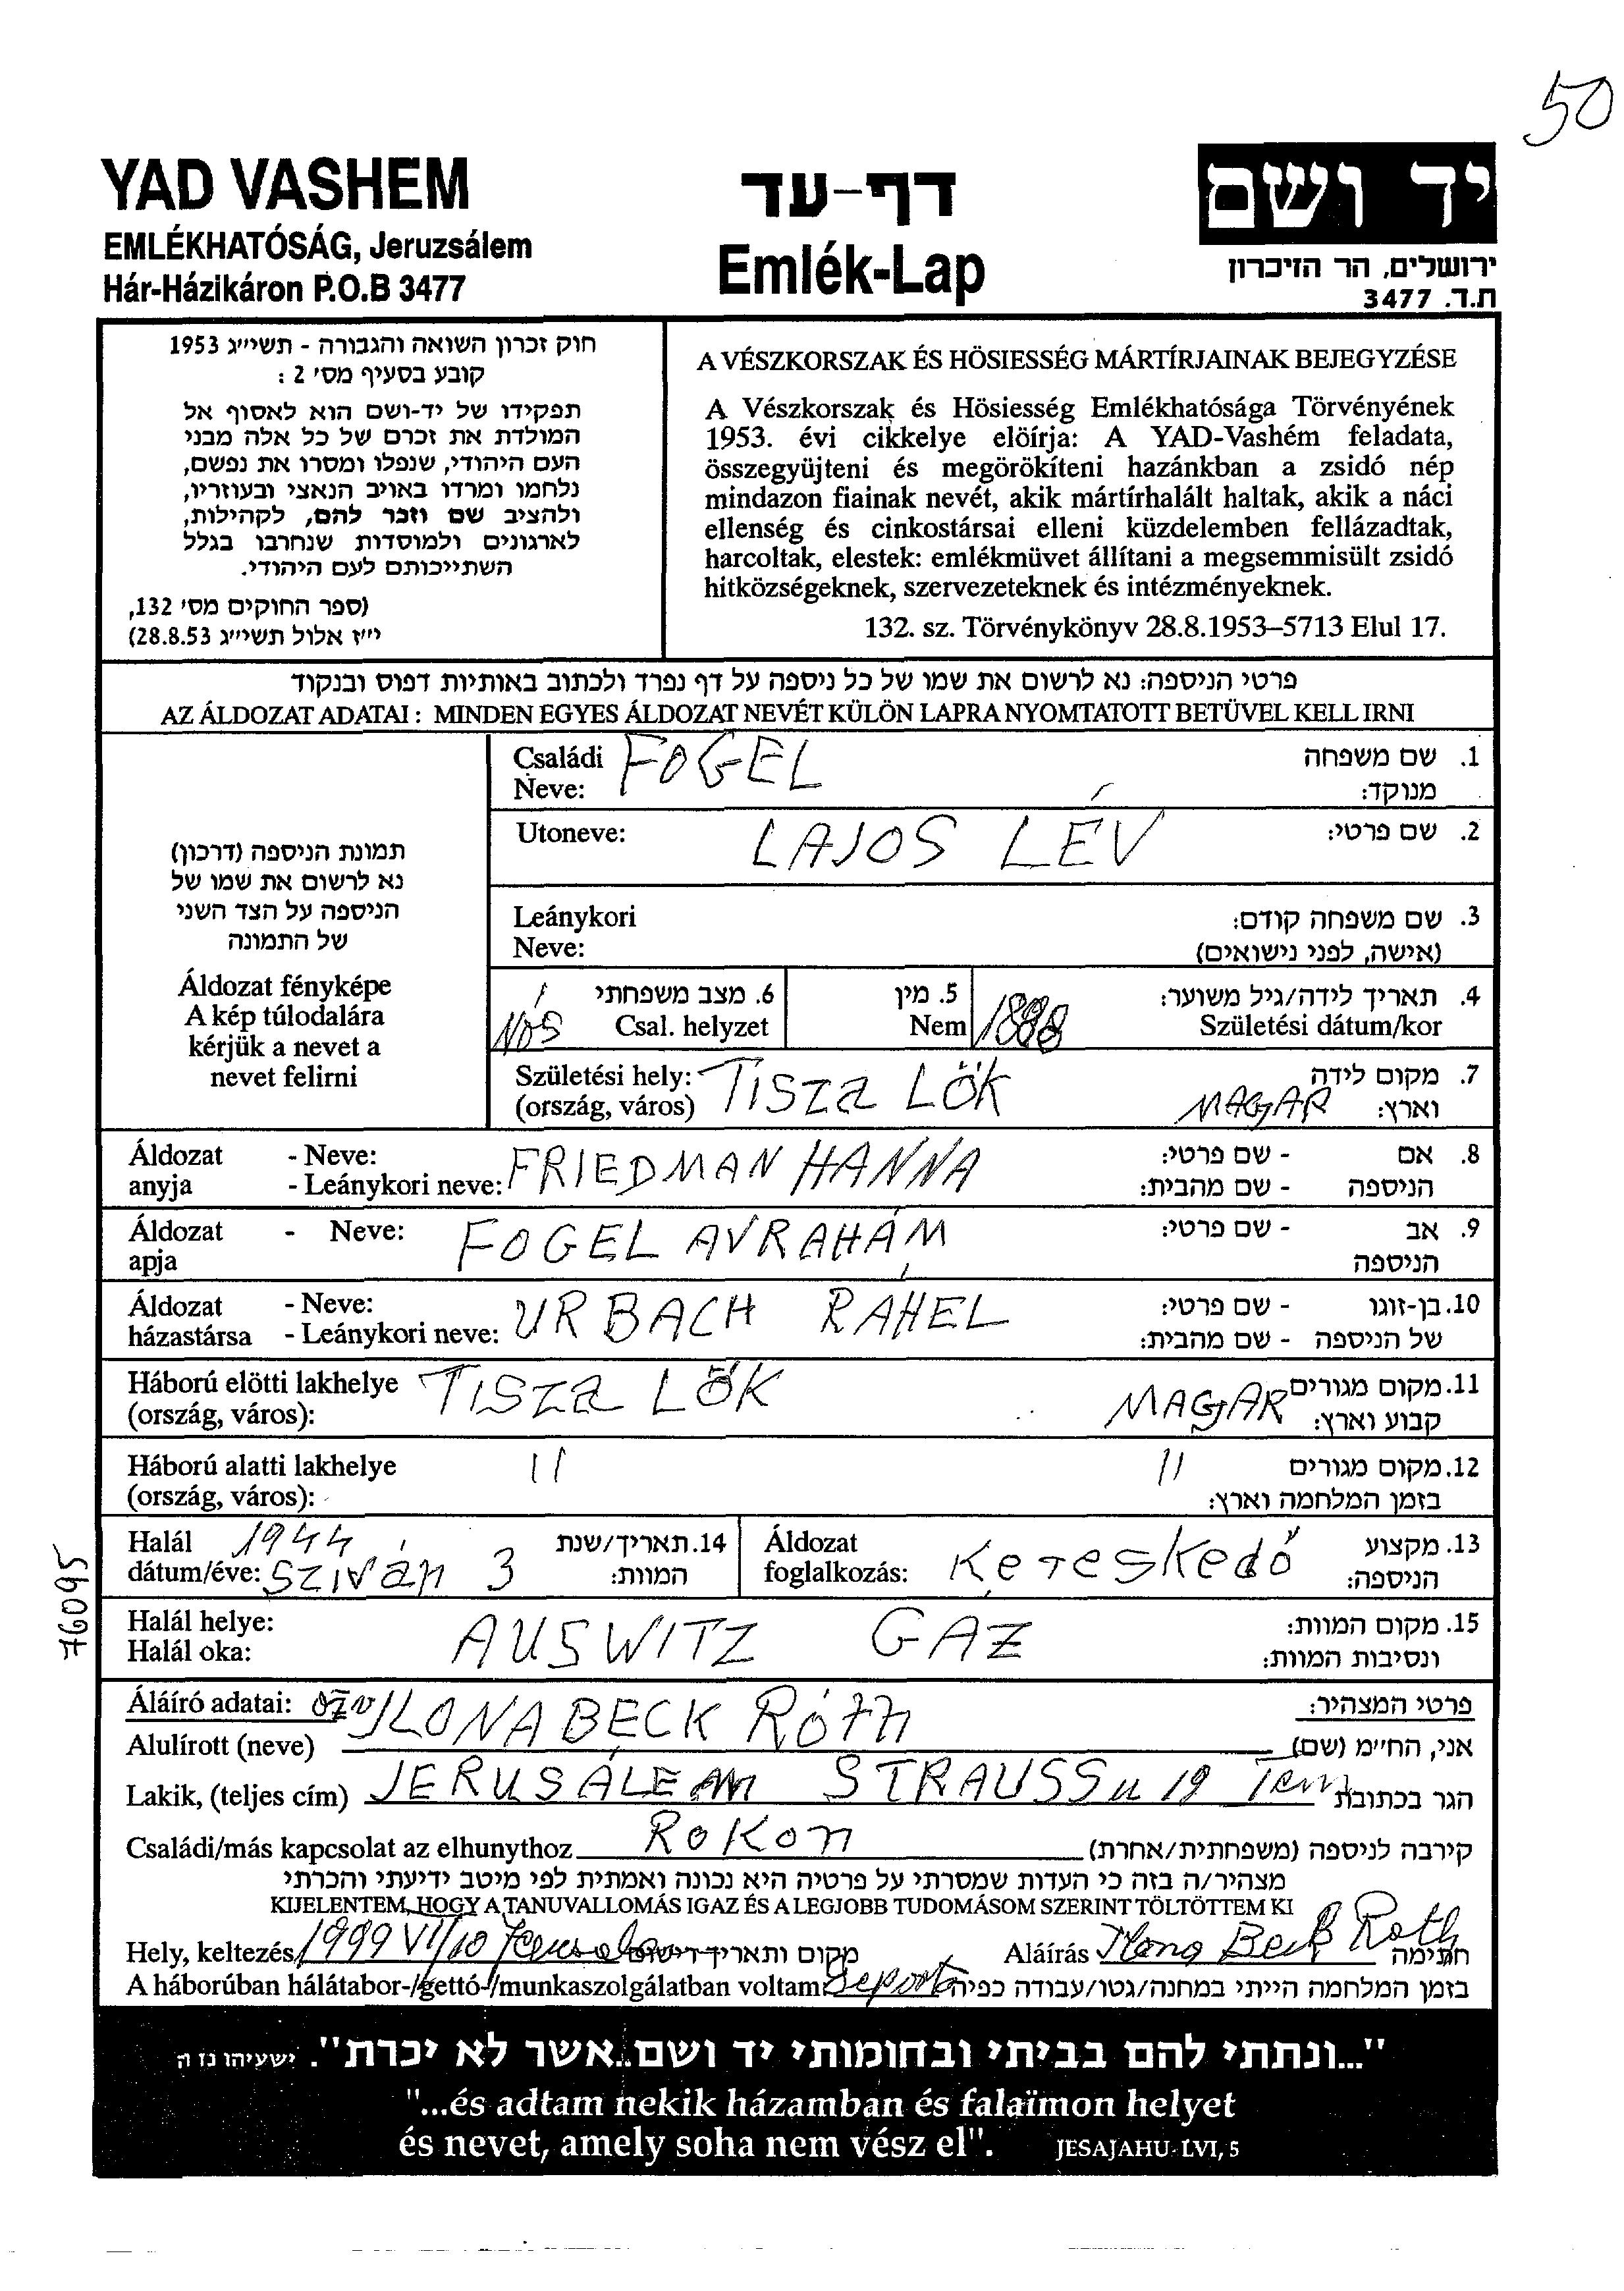 50
YAD VASHEM
EMLÉKHATÓSÁG, Jeruzsálem
Hár-Házikáron P.O.B 3477
דף-עד
Emlék-Lap
יד ושם
ירושלים, הר הזיכרון
ת.ד. 3477
חוק זכרון השואה והגבורה - תשי״ג 1953
קובע בסעיף מס׳ 2 :
תפקידו של יד-ושם הוא לאסוף אל
המולדת את זכרם של כל אלה מבני
העם היהודי, שנפלו ומסרו את נפשם,
נלחמו ומרדו באויב הנאצי ובעוזריו,
ולהציב שם וזכר להם, לקהילות,
לארגונים ולמוסדות שנחרבו בגלל
השתייכותם לעם היהודי.
(ספר החוקים מס׳ 132,
י״ז אלול תשי״ג 28.8.53)
A VÉSZKORSZAK ÉS HÖSIESSÉG MÁRTÍRJAINAK BEJEGYZÉSE
A Vészkorszak és Hösiesség Emlékhatósága Törvényének
1953. évi cikkelye elöírja: A YAD-Vashém feladata,
összegyüjteni és megörökíteni hazánkban a zsidó nép
mindazon fiainak nevét, akik mártírhalált haltak, akik a náci
ellenség és cinkostársai elleni küzdelemben fellázadtak,
harcoltak, elestek: emlékmüvet állítani a megsemmisült zsidó
hitközségeknek, szervezeteknek és intézményeknek.
132. sz. Törvénykönyv 28.8.1953–5713 Elul 17.
פרטי הניספה: נא לרשום את שמו של כל ניספה על דף נפרד ולכתוב באותיות דפוס ובנקוד
AZ ÁLDOZAT ADATAI : MINDEN EGYES ÁLDOZAT NEVÉT KÜLÖN LAPRA NYOMTATOTT BETÜVEL KELL IRNI
תמונת הניספה (דרכון)
נא לרשום את שמו של
הניספה על הצד השני
של התמונה
Áldozat fényképe
A kép túlodalára
kérjük a nevet a
nevet felirni
Családi Neve: FOGEL 1. שם משפחה מנוקד:
Utoneve: LAJOS LÉV 2. שם פרטי:
Leánykori Neve: 3. שם משפחה קודם: (אישה, לפני נישואים)
NÖS 6. מצב משפחתי Csal. helyzet
5. מין Nem
1888 4. תאריך לידה/גיל משוער: Születési dátum/kor
Születési hely: (ország, város) Tisza LÖK MAGYAR 7. מקום לידה וארץ:
Áldozat anyja - Neve: - Leánykori neve: FRIEDMAN HANNA 8. אם הניספה - שם פרטי: - שם מהבית:
Áldozat apja - Neve: FOGEL AVRAHÁM 9. אב הניספה - שם פרטי:
Áldozat házastársa - Neve: - Leánykori neve: URBACH RAHEL 10. בן-זוגו של הניספה - שם פרטי: - שם מהבית:
Háború elötti lakhelye (ország, város): Tisza LÖK MAGYAR 11. מקום מגורים קבוע וארץ:
Háború alatti lakhelye (ország, város): 11 11 12. מקום מגורים בזמן המלחמה וארץ:
Halál dátum/éve: 1944 Sziván 3 14. תאריך/שנת המוות:
Áldozat foglalkozás: Kereskedő 13. מקצוע הניספה:
Halál helye: Halál oka: AUSWITZ GAZ 15. מקום המוות: ונסיבות המוות:
76095
Áláíró adatai: ÖZV ILONA BECK Róth פרטי המצהיר:
Alulírott (neve) אני, הח״מ (שם)
Lakik, (teljes cím) JERUSÁLEM STRAUSS u 19 הגר בכתובת
Családi/más kapcsolat az elhunythoz ROKON קירבה לניספה (משפחתית/אחרת)
מצהיר/ה בזה כי העדות שמסרתי על פרטיה היא נכונה ואמתית לפי מיטב ידיעתי והכרתי
KIJELENTEM, HOGY A TANUVALLOMÁS IGAZ ÉS A LEGJOBB TUDOMÁSOM SZERINT TÖLTÖTTEM KI
Hely, keltezés 1999 VI/10 מקום ותאריך Aláírás Ilona Beck Roth חתימה
A háborúban hálátabor-/gettó-/munkaszolgálatban voltam: Deport בזמן המלחמה הייתי במחנה/גטו/עבודה כפיה
"...ונתתי להם בביתי ובחומותי יד ושם..אשר לא יכרת". ישעיהו נו ה
"...és adtam nekik házamban és falaimon helyet
és nevet, amely soha nem vész el". JESAJAHU-LVI, 5